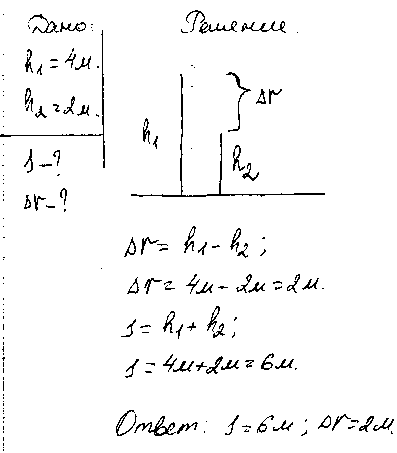 Дано:
h1 = 4м.
h2 = 2м.
S - ?
Δr - ?
Решение.
h1
Δr
h2
Δr = h1 - h2;
Δr = 4м - 2м = 2м.
S = h1 + h2;
S = 4м + 2м = 6м.
Ответ: S = 6м; Δr = 2м.